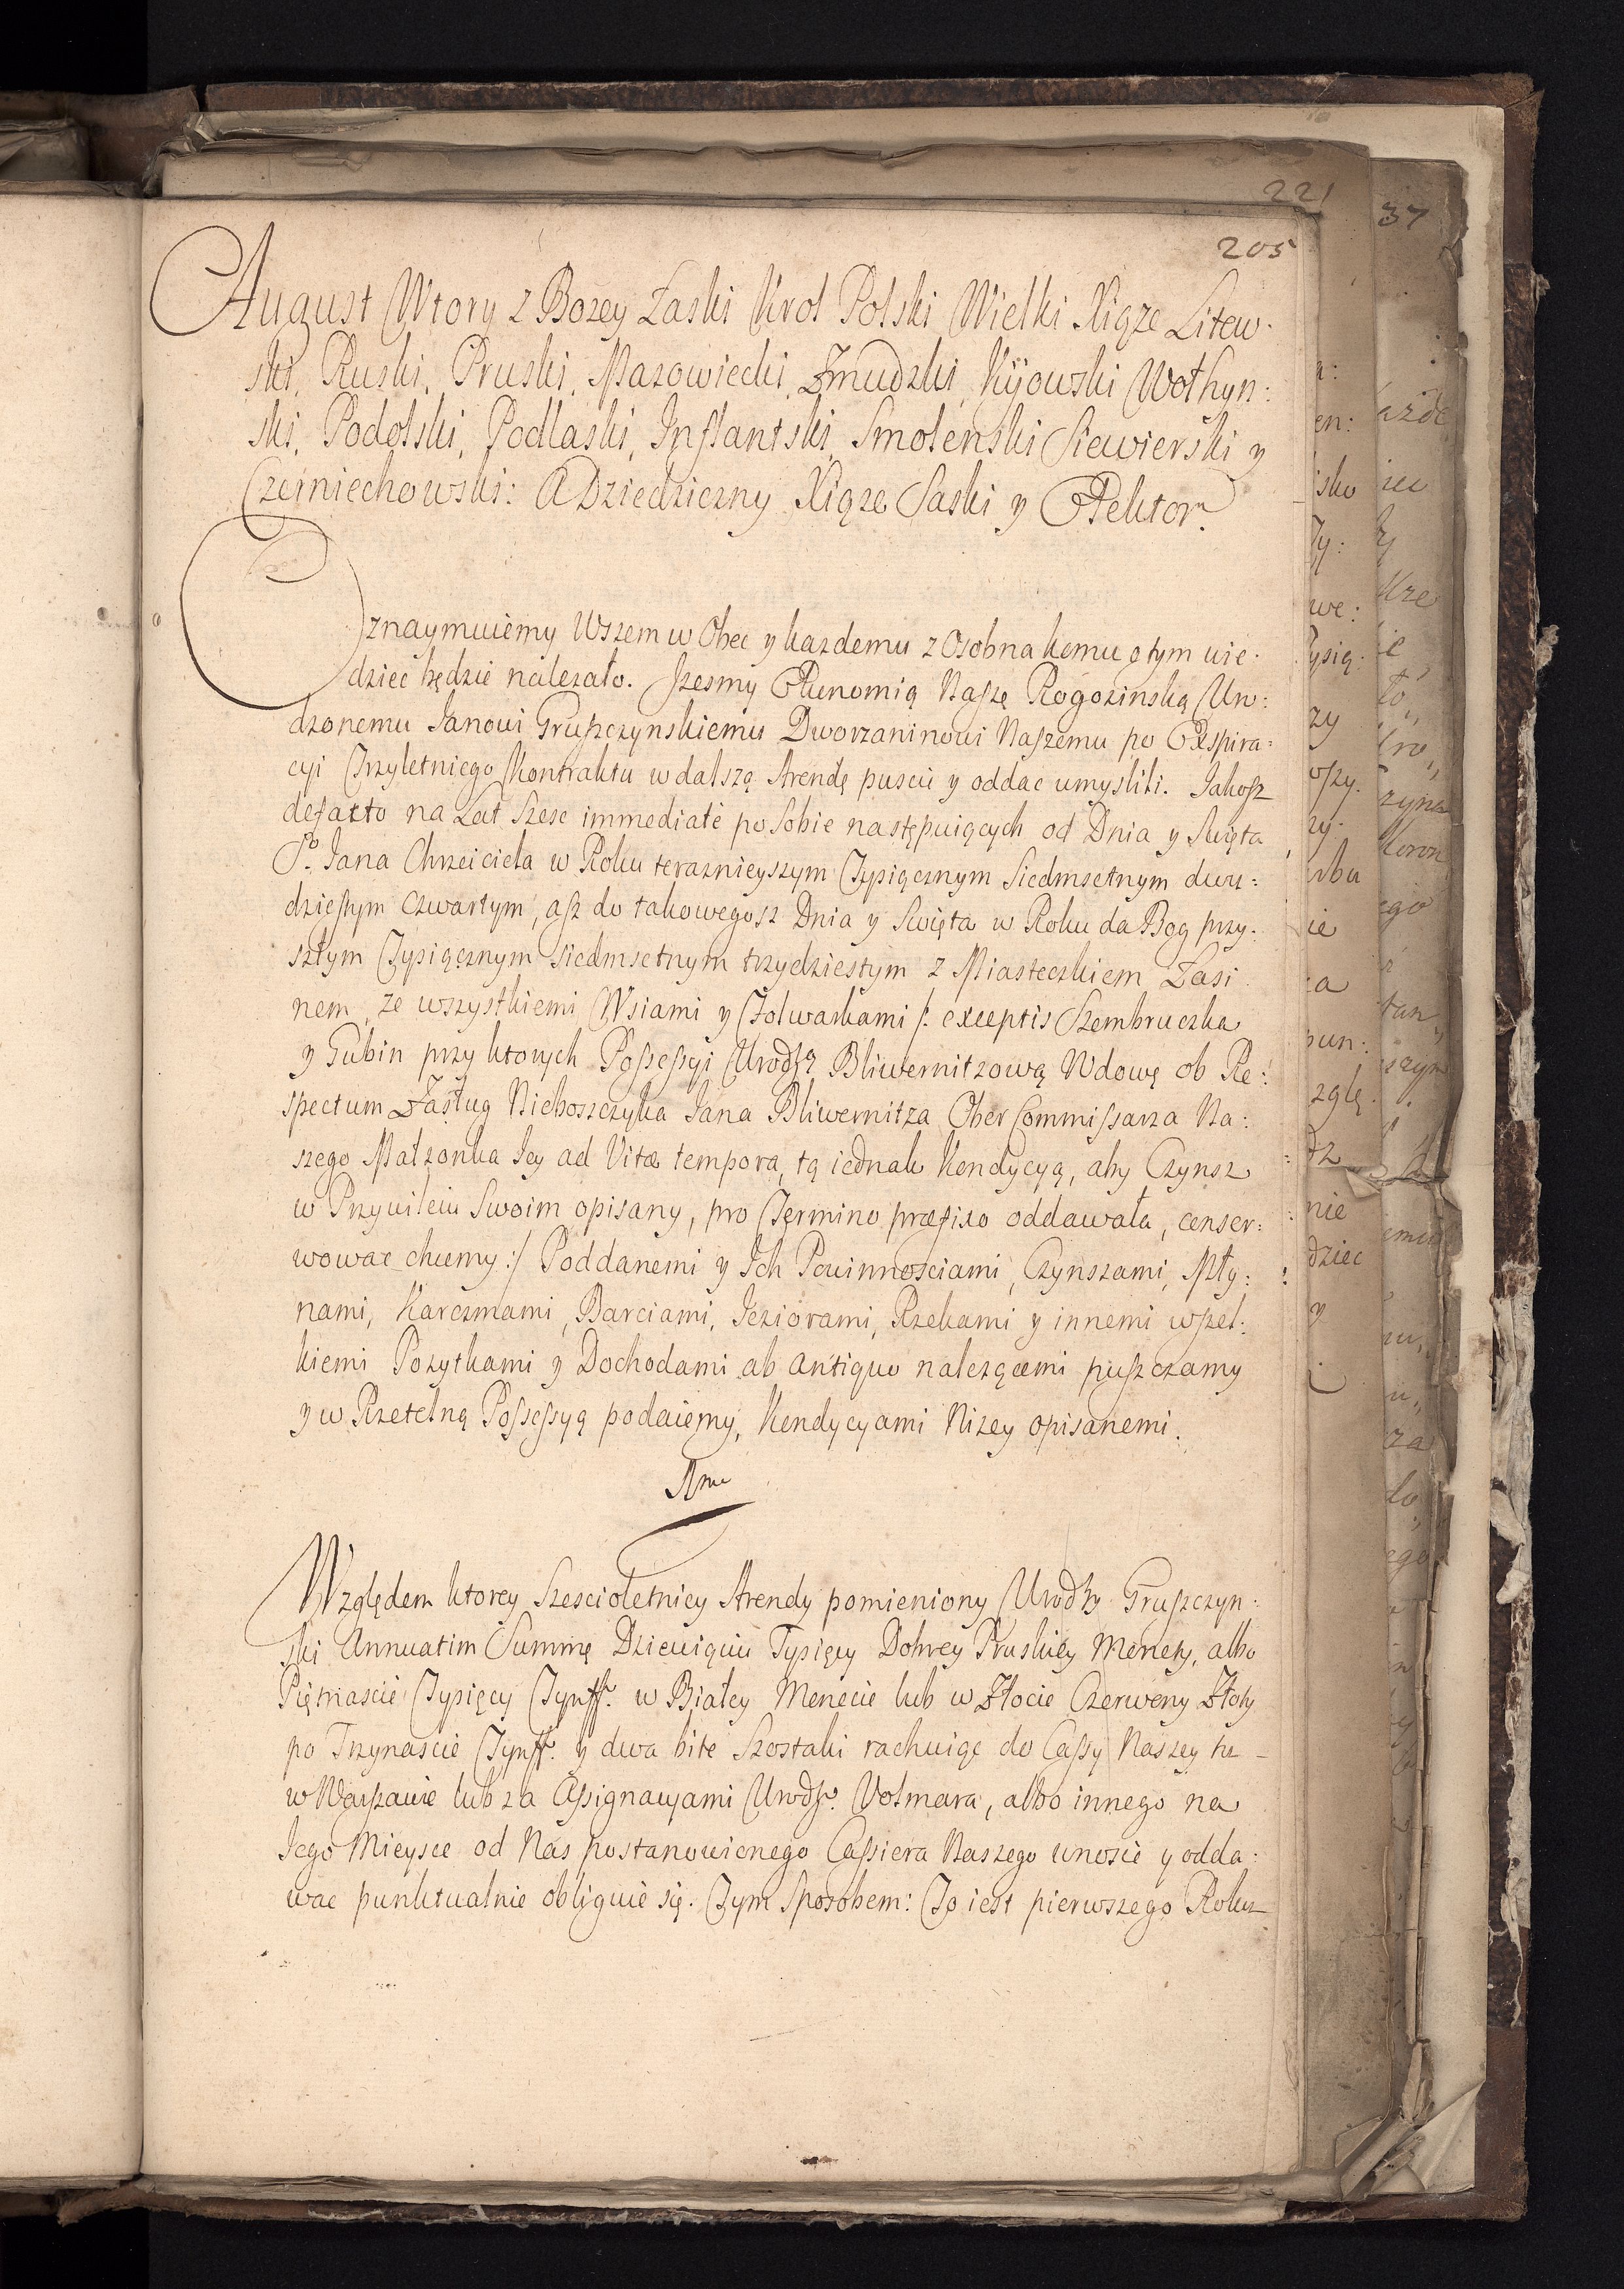 221
37
205
August Wtory z Bozey Łaski Krol Polski Wielki Xiąze Litew:
ski, Ruski, Pruski, Mazowiecki, Zmudzki, Kijowski Wołhyn:
ski, Podolski, Podlaski, Inflantski, Smolenski Siewierski y
Czerniechowski: A Dziedziczny Xiąze Saski y Elektor.
Oznaymuiemy Wszem w Obec y kazdemu z Osobna komu o tym wie:
dziec będzie nalezało. Jzesmy Ekonomią Naszę Rogozinską Uro:
dzonemu Janowi Gruszczynskiemu Dworzaninowi Naszemu po Exspira:
cyi Trzyletniego Kontraktu w dalszą Arendę puscic y oddac umyslili. Jakosz
defacto na Lat Szesc immediate po sobie następuiących od Dnia y Swięta
So. Jana Chrzciciela w Roku teraznieyszym Tysiącznym Siedmsetnym dwu:
dziestym czwartym, asz do takowegosz Dnia y Swięta w Roku da Bog przy:
szłym Tysiącznym Siedmsetnym trzydziestym z Miasteczkiem Łasi
nem, ze wszystkiemi Wsiami y Folwarkami /: exceptis Szembruczka
y Gubin przy ktorych Possessyi Urodzą Bliwernitzową Wdowę ob Re:
spectum Zasług Nieboszczyka Jana Bliwernitza Ober Commissarza Na:
szego Małzonka Jey ad Vitæ tempora, tą iednak Kondycyą, aby Czynsz
w Przywileiu Swoim opisany, pro Termino præfixo oddawała, conser:
wowac chcemy :/ Poddanemi y Ich Powinnosciami, Czynszami, Mły:
nami, Karczmami, Barciami, Jeziorami, Rzekami y innemi wszel:
kiemi Pozytkami y Dochodami ab antiquo nalezącemi puszczamy
y w Rzetelną Possessyą podaiemy, Kondycyami Nizey opisanemi.
1mo
Względem ktorey Szescioletniey Arendy pomieniony Urodzy Gruszczyn:
ski Annuatim Summę Dziewięciu Tysięcy Dobrey Pruskiey Monety, albo
Piętnascie Tysięcy Tynff. w Białey Monecie lub w Złocie Czerwony Złoty
po Trzynascie Tynff. y dwa bite Szostaki rachuiąc do Cassy Naszey tu
w Warszawie lub za Assignacyami Urodzo. Volmara, albo innego na
Jego Mieysce od Nas postanowionego Cassiera Naszego wnosic y odda:
wac punktualnie obliguie się. Tym Sposobem: To iest pierwszego Roku